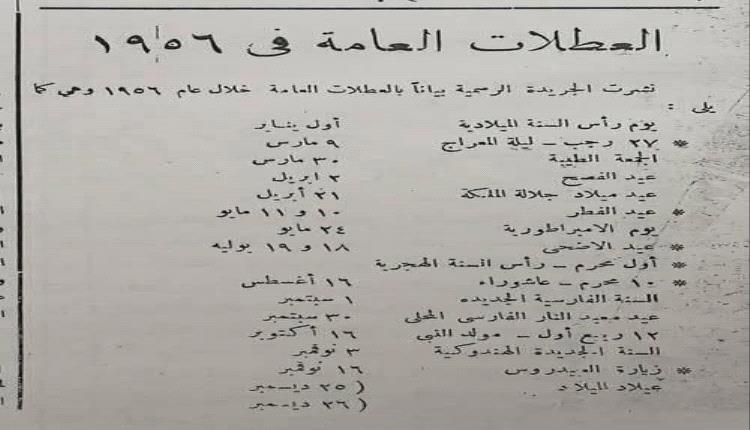 العطلات العامة فى ١٩٥٦
نشرت الجريدة الرسمية بياناً بالعطلات العامة خلال عام ١٩٥٦ وهي كما
يلى :
يوم رأس السنة الميلادية أول يناير
* ٢٧ رجب - ليلة المعراج ٩ مارس
الجمعة الطيبة ٣٠ مارس
عيد الفصح ٢ ابريل
عيد ميلاد جلالة الملكة ٢١ أبريل
* عيد الفطر ١٠ و ١١ مايو
يوم الامبراطورية ٢٤ مايو
* عيد الاضحى ١٨ و ١٩ يوليه
* أول محرم - رأس السنة الهجرية
* ١٠ محرم - عاشوراء ١٦ أغسطس
السنة الفارسية الجديده ١ سبتمبر
عيد معبد النار الفارسى المحلى ٣٠ سبتمبر
١٢ ربيع أول - مولد النبي ١٦ أكتوبر
السنة الجديدة الهندوكية ٣ نوفمبر
* زيارة العيدروس ١٦ نوفمبر
عيلاد الميلاد ( ٢٥ ديسمبر
( ٢٦ ديسمبر